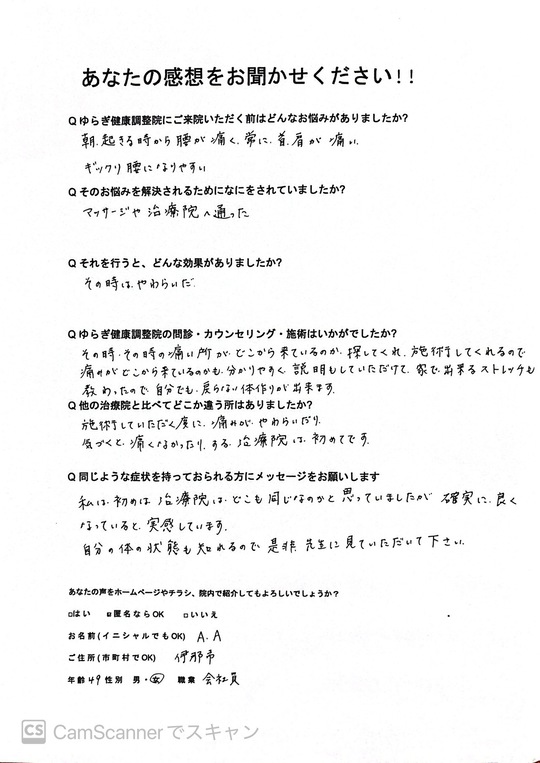 あなたの感想をお聞かせください!!
Q ゆらぎ健康調整院にご来院いただく前はどんなお悩みがありましたか?
朝、起きる時から腰が痛く、常に、首、肩が痛い、
ギックリ腰になりやすい
Q そのお悩みを解決されるためになにをされていましたか?
マッサージや治療院へ通った
Q それを行うと、どんな効果がありましたか?
その時は、やわらいだ
Q ゆらぎ健康調整院の問診・カウンセリング・施術はいかがでしたか?
その時、その時の痛い所がどこから来ているのか、探してくれ、施術してくれるので
痛みがどこから来ているのかも、分かりやすく、説明もしていただけて、家で、出来るストレッチも
教わったので、自分でも、戻らない体作りが出来ます。
Q 他の治療院と比べてどこか違う所はありましたか?
施術していただく度に、痛みが、やわらいだり、
気づくと、痛くなかったり、する、治療院は、初めてです。
Q 同じような症状を持っておられる方にメッセージをお願いします
私は、初めは、治療院は、どこも同じなのかと思っていましたが、確実に、良く
なっていると、実感しています。
自分の体の状態も知れるので、是非、先生に見ていただいて下さい。
あなたの声をホームページやチラシ、院内で紹介してもよろしいでしょうか?
□はい ☑匿名ならOK □いいえ
お名前(イニシャルでもOK) A.A
ご住所(市町村でOK) 伊那市
年齢 49 性別 男・女 職業 会社員
CS CamScanner でスキャン